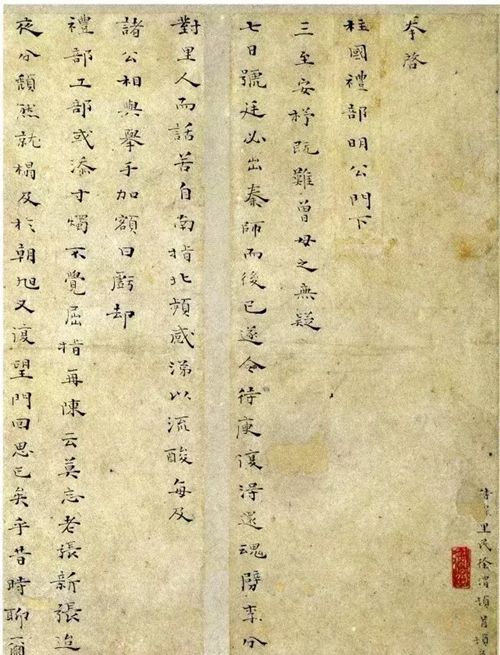 里民徐渭頓首頓
奉啓
柱國禮部明公門下
三至安杼既難曾母之無疑
七日號廷必出秦師而後已遂令待庚復淂還魂李分
對里人而話苦自南指北頻感涕以流酸每及
諸公相與舉手加額曰虧却
禮部工部或添寸燭不覺屈指再陳云莫忘老張新張迨
夜分頹然就榻及於朝旭又復望門回思已矣乎昔時聊